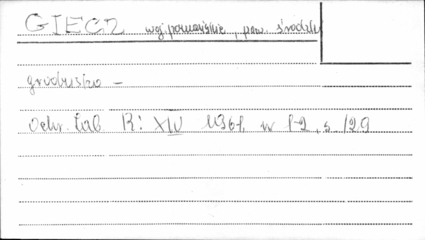 GIECZ woj. poznańskie, pow. środzki
grodzisko –
Ochr. Zab. R: XIV 1961, nr 1-2, s. 129